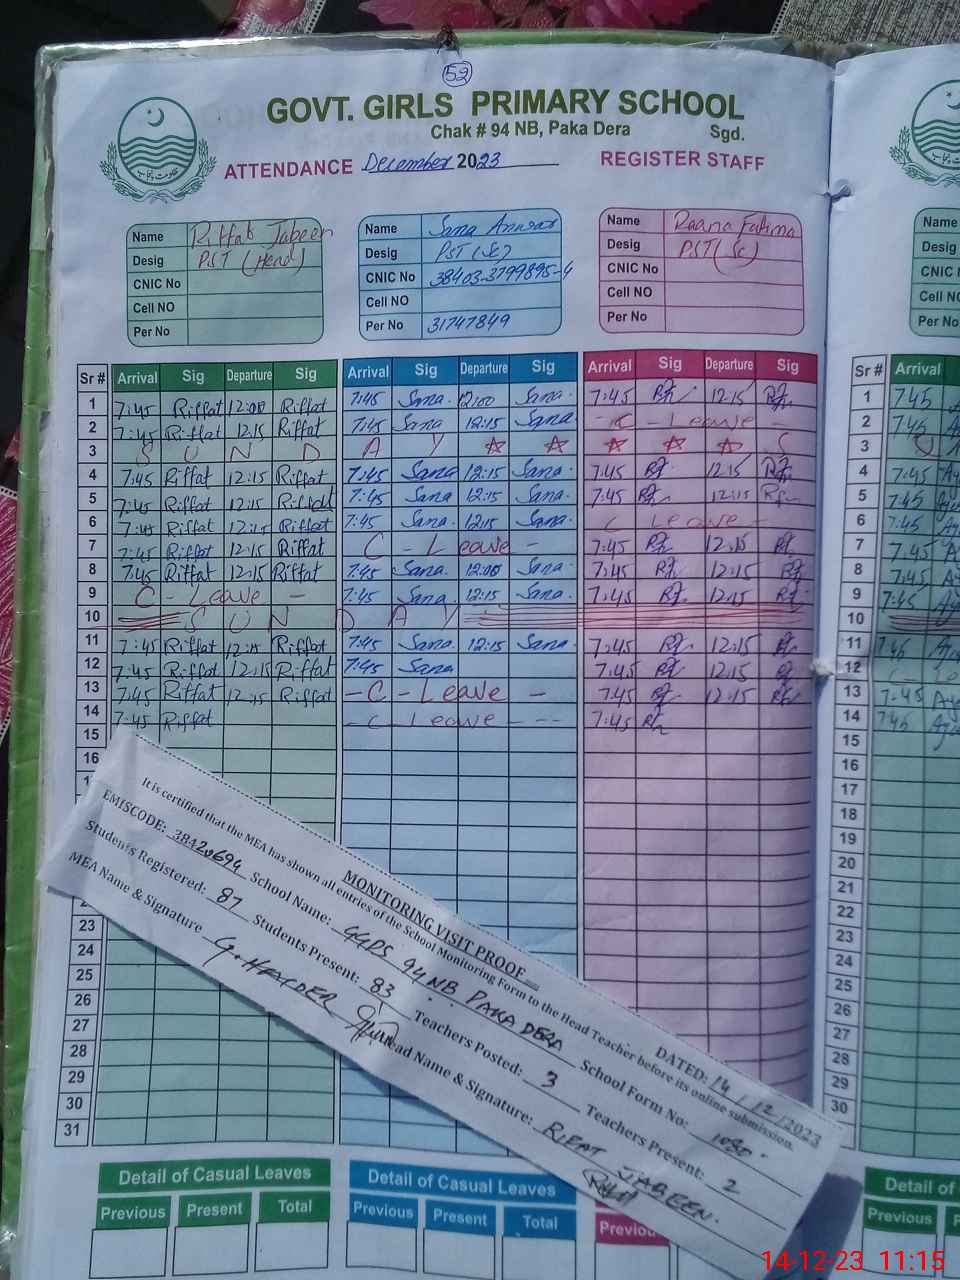 52
GOVT. GIRLS PRIMARY SCHOOL
Chak # 94 NB, Paka Dera Sgd.
ATTENDANCE December 2023 REGISTER STAFF
Name Riffat Jabeen
Desig PST (Head)
CNIC No
Cell NO
Per No
Name Sana Anwar
Desig PST (Sc)
CNIC No 38403-3799895-4
Cell NO
Per No 31747849
Name Raana Fatima
Desig PST (Sc)
CNIC No
Cell NO
Per No
Name
Desig
CNIC
Cell N
Per No
Sr # Arrival Sig Departure Sig Arrival Sig Departure Sig Arrival Sig Departure Sig Sr # Arrival
1 7:45 Riffat 12:00 Riffat 7:45 Sana. 12:00 Sana. 7:45 12:15 1 7:45
2 7:45 Riffat 12:15 Riffat 7:45 Sana 12:15 Sana. - C - Leave - 2 7:45
3 S U N D A Y 3
4 7:45 Riffat 12:15 Riffat 7:45 Sana 12:15 Sana. 7:45 12:15 4 7:45
5 7:45 Riffat 12:15 Riffat 7:45 Sana 12:15 Sana. 7:45 12:15 5 7:45
6 7:45 Riffat 12:15 Riffat 7:45 Sana. 12:15 Sana. C Leave - 6 7:45
7 7:45 Riffat 12:15 Riffat C - Leave - 7:45 12:15 7 7:45
8 7:45 Riffat 12:15 Riffat 7:45 Sana. 12:00 Sana. 7:45 12:15 8 7:45
9 C - Leave - 7:45 Sana. 12:15 Sana. 7:45 12:15 9 7:45
10 S U N D A Y 10
11 7:45 Riffat 12:15 Riffat 7:45 Sana. 12:15 Sana. 7:45 12:15 11 7:45
12 7:45 Riffat 12:15 Riffat 7:45 Sana 7:45 12:15 12
13 7:45 Riffat 12:15 Riffat - C - Leave - 7:45 12:15 13 7:45
14 7:45 Riffat - C Leave - -- 7:45 14 7:45
15 15
16 16
17
18
19
20
21
22
23 23
24 24
25 25
26 26
27 27
28 28
29 29
30 30
31
MONITORING VISIT PROOF
DATED: 14/12/2023
It is certified that the MEA has shown all entries of the School Monitoring Form to the Head Teacher before its online submission.
EMISCODE: 38420694 School Name: GGPS 94 NB PAKA DERA School Form No: 1080
Students Registered: 87 Students Present: 83 Teachers Posted: 3 Teachers Present: 2
MEA Name & Signature G. HAYDER Head Name & Signature: RIFAT JABEEN.
Detail of Casual Leaves
Previous Present Total
Detail of Casual Leaves
Previous Present Total
Previou
Detail of
Previous P
14-12-23 11:15